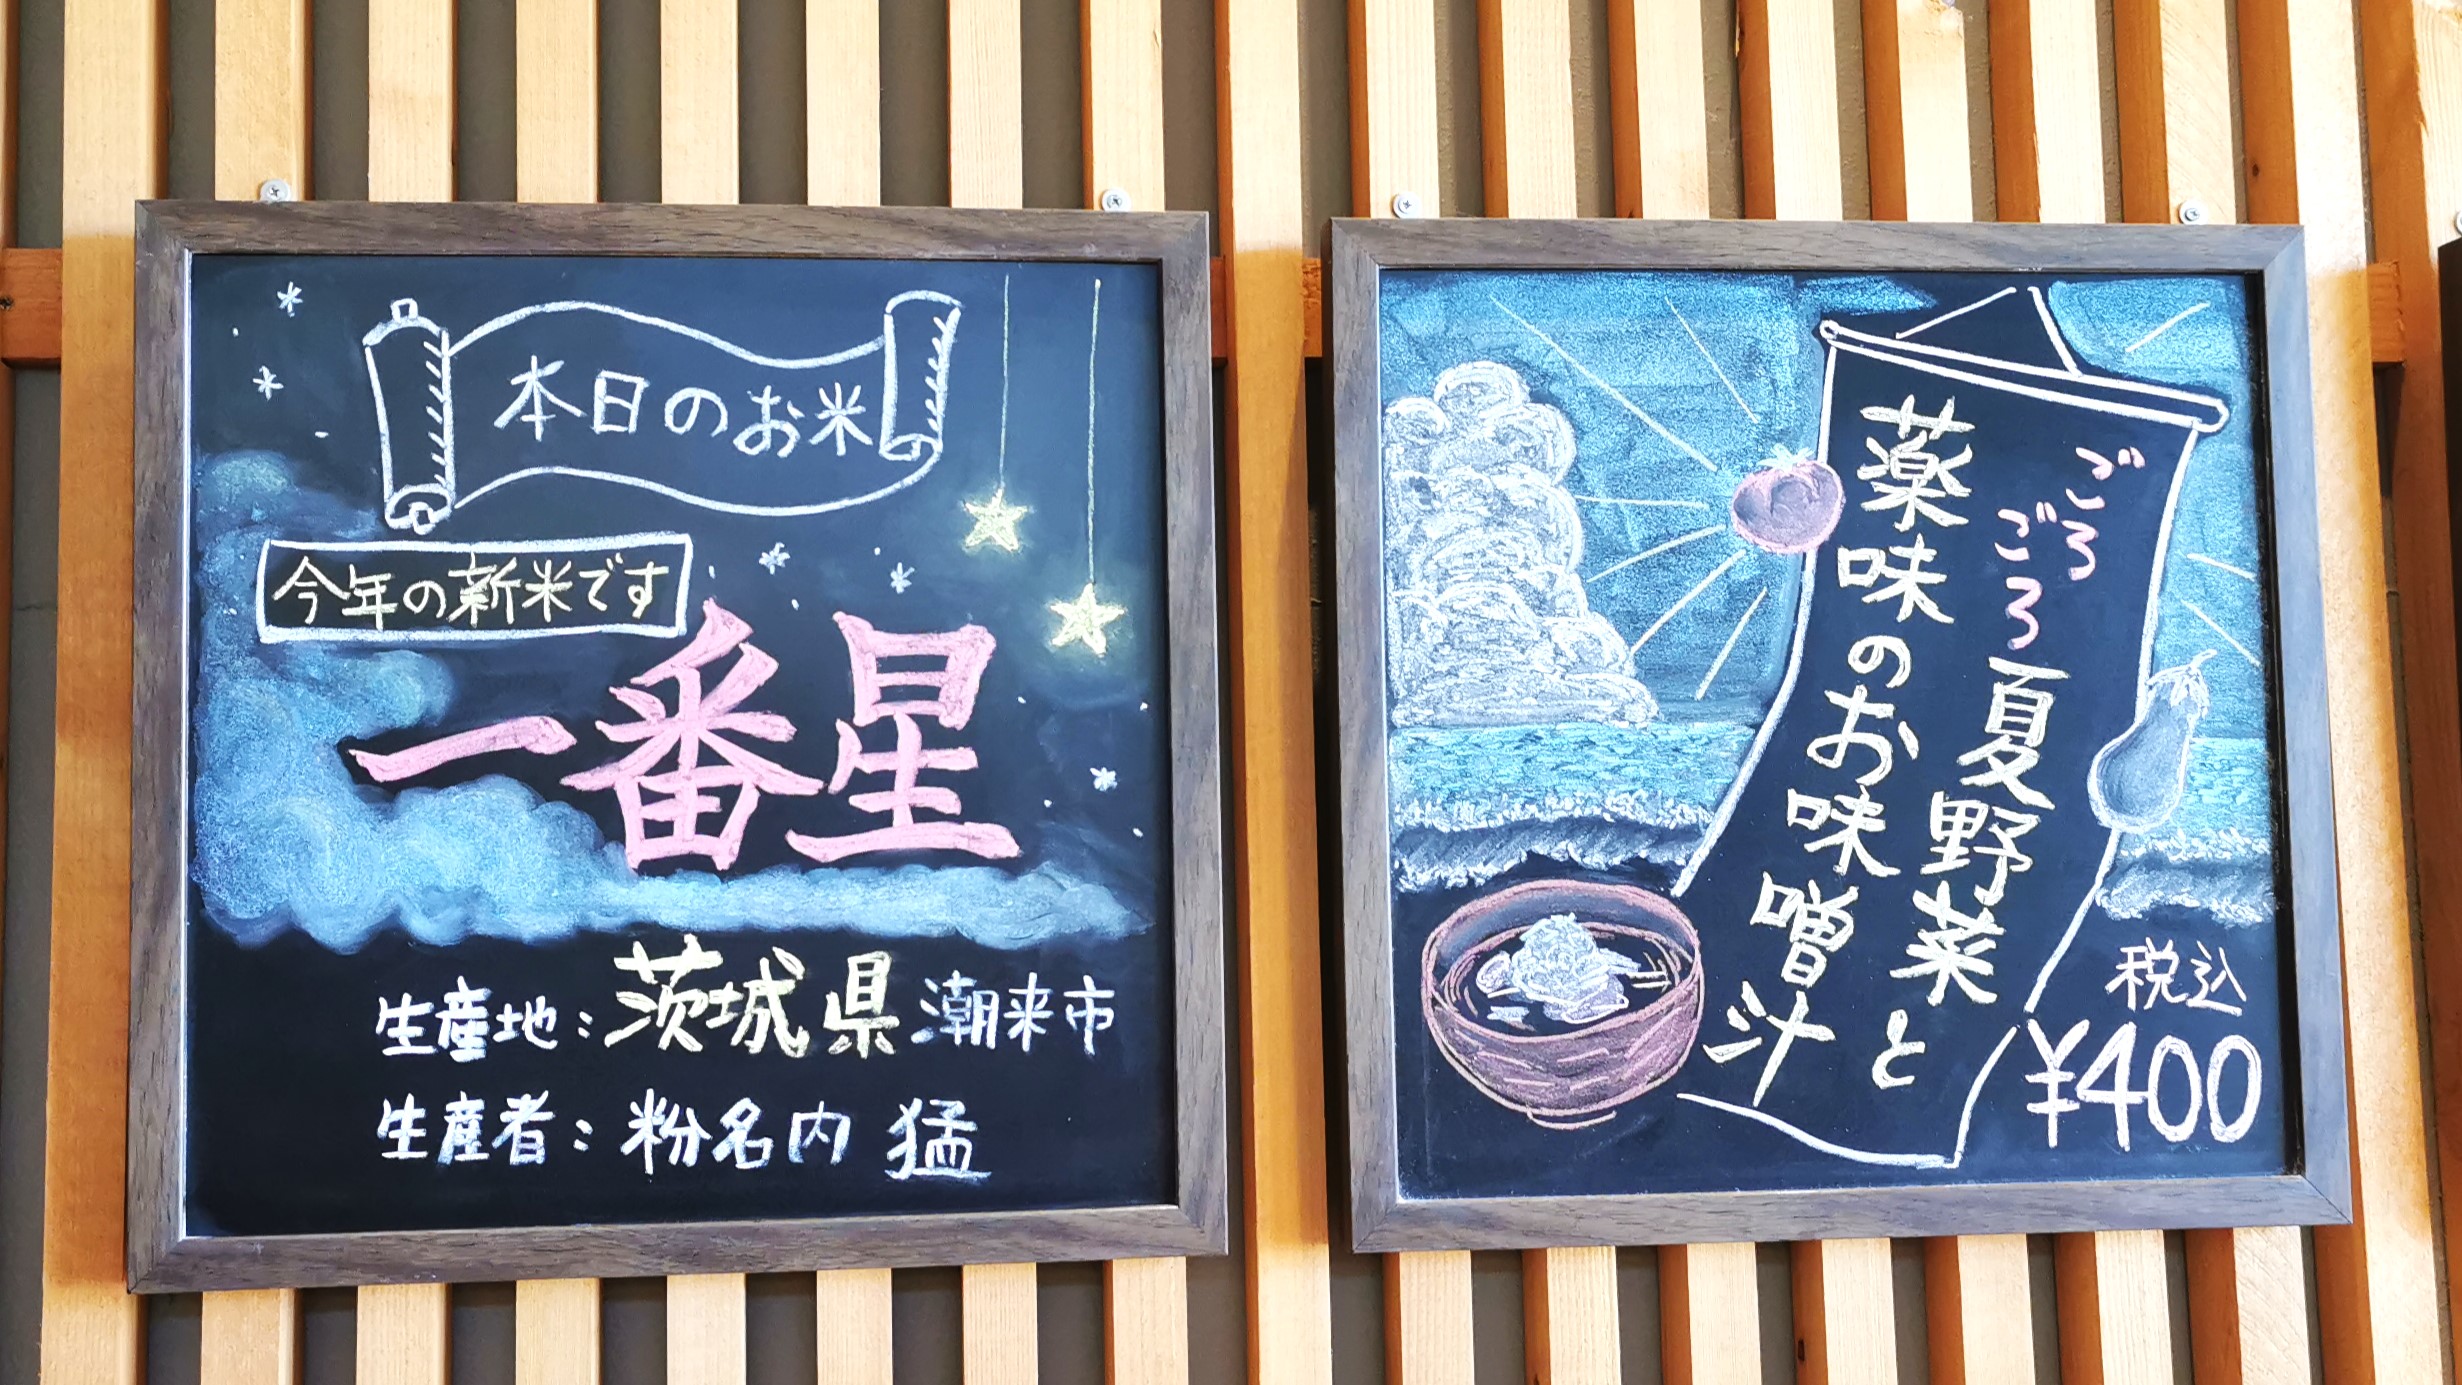 本日のお米
今年の新米です
一番星
生産地：茨城県潮来市
生産者：粉名内 猛
ごろごろ夏野菜と
薬味のお味噌汁
税込
¥400